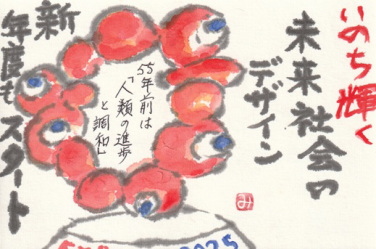 いのち輝く
未来社会の
デザイン
55年前は
「人類の進歩
と調和」
新
年度も
スタート
み
2025